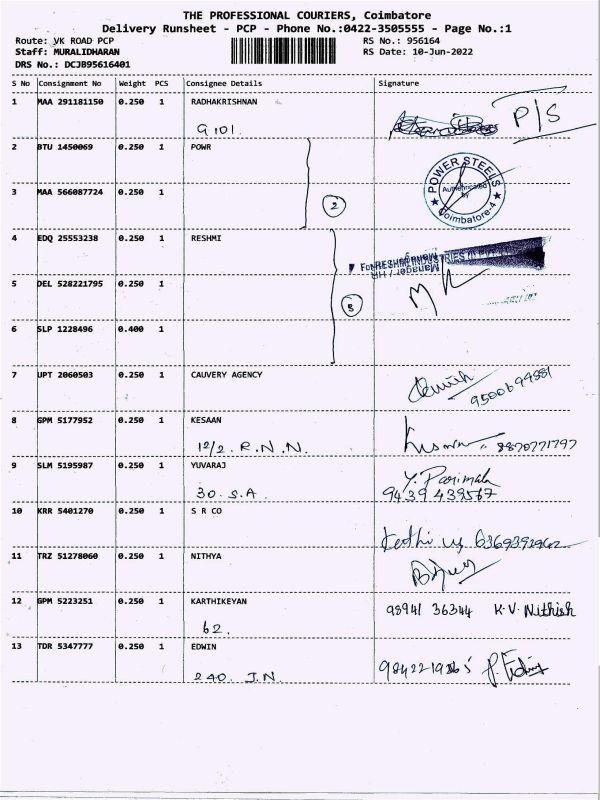 THE PROFESSIONAL COURIERS, Coimbatore
Delivery Runsheet - PCP - Phone No.:0422-3505555 - Page No.:1
Route: VK ROAD PCP
RS No.: 956164
Staff: MURALIDHARAN
RS Date: 10-Jun-2022
DRS No.: DCJB95616401
S No Consignment No Weight PCS Consignee Details Signature
1 MAA 291181150 0.250 1 RADHAKRISHNAN
G 101. P/S
2 BTU 1450069 0.250 1 POWR
POWER STEELS
Authenticated
by
Coimbatore-4
3 MAA 566087724 0.250 1
2
4 EDQ 25553238 0.250 1 RESHMI
Manager / HR
5 DEL 528221795 0.250 1
3
6 SLP 1228496 0.400 1
7 UPT 2060503 0.250 1 CAUVERY AGENCY
9500694881
8 GPM 5177952 0.250 1 KESAAN
12/2. R.N.N. 8870771797
9 SLM 5195987 0.250 1 YUVARAJ
Y. Parimala
30. S.A. 9439439567
10 KRR 5401270 0.250 1 S R CO
11 TRZ 51278060 0.250 1 NITHYA
12 GPM 5223251 0.250 1 KARTHIKEYAN
98941 36344 K.V. Nithish
62.
13 TDR 5347777 0.250 1 EDWIN
240. J.N.